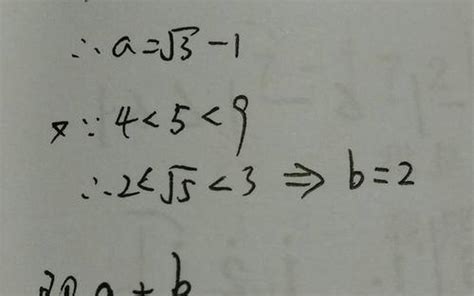 ∴ a=√3-1
又∵ 4<5<9
∴ 2<√5<3 ⇒ b=2
则 a+b